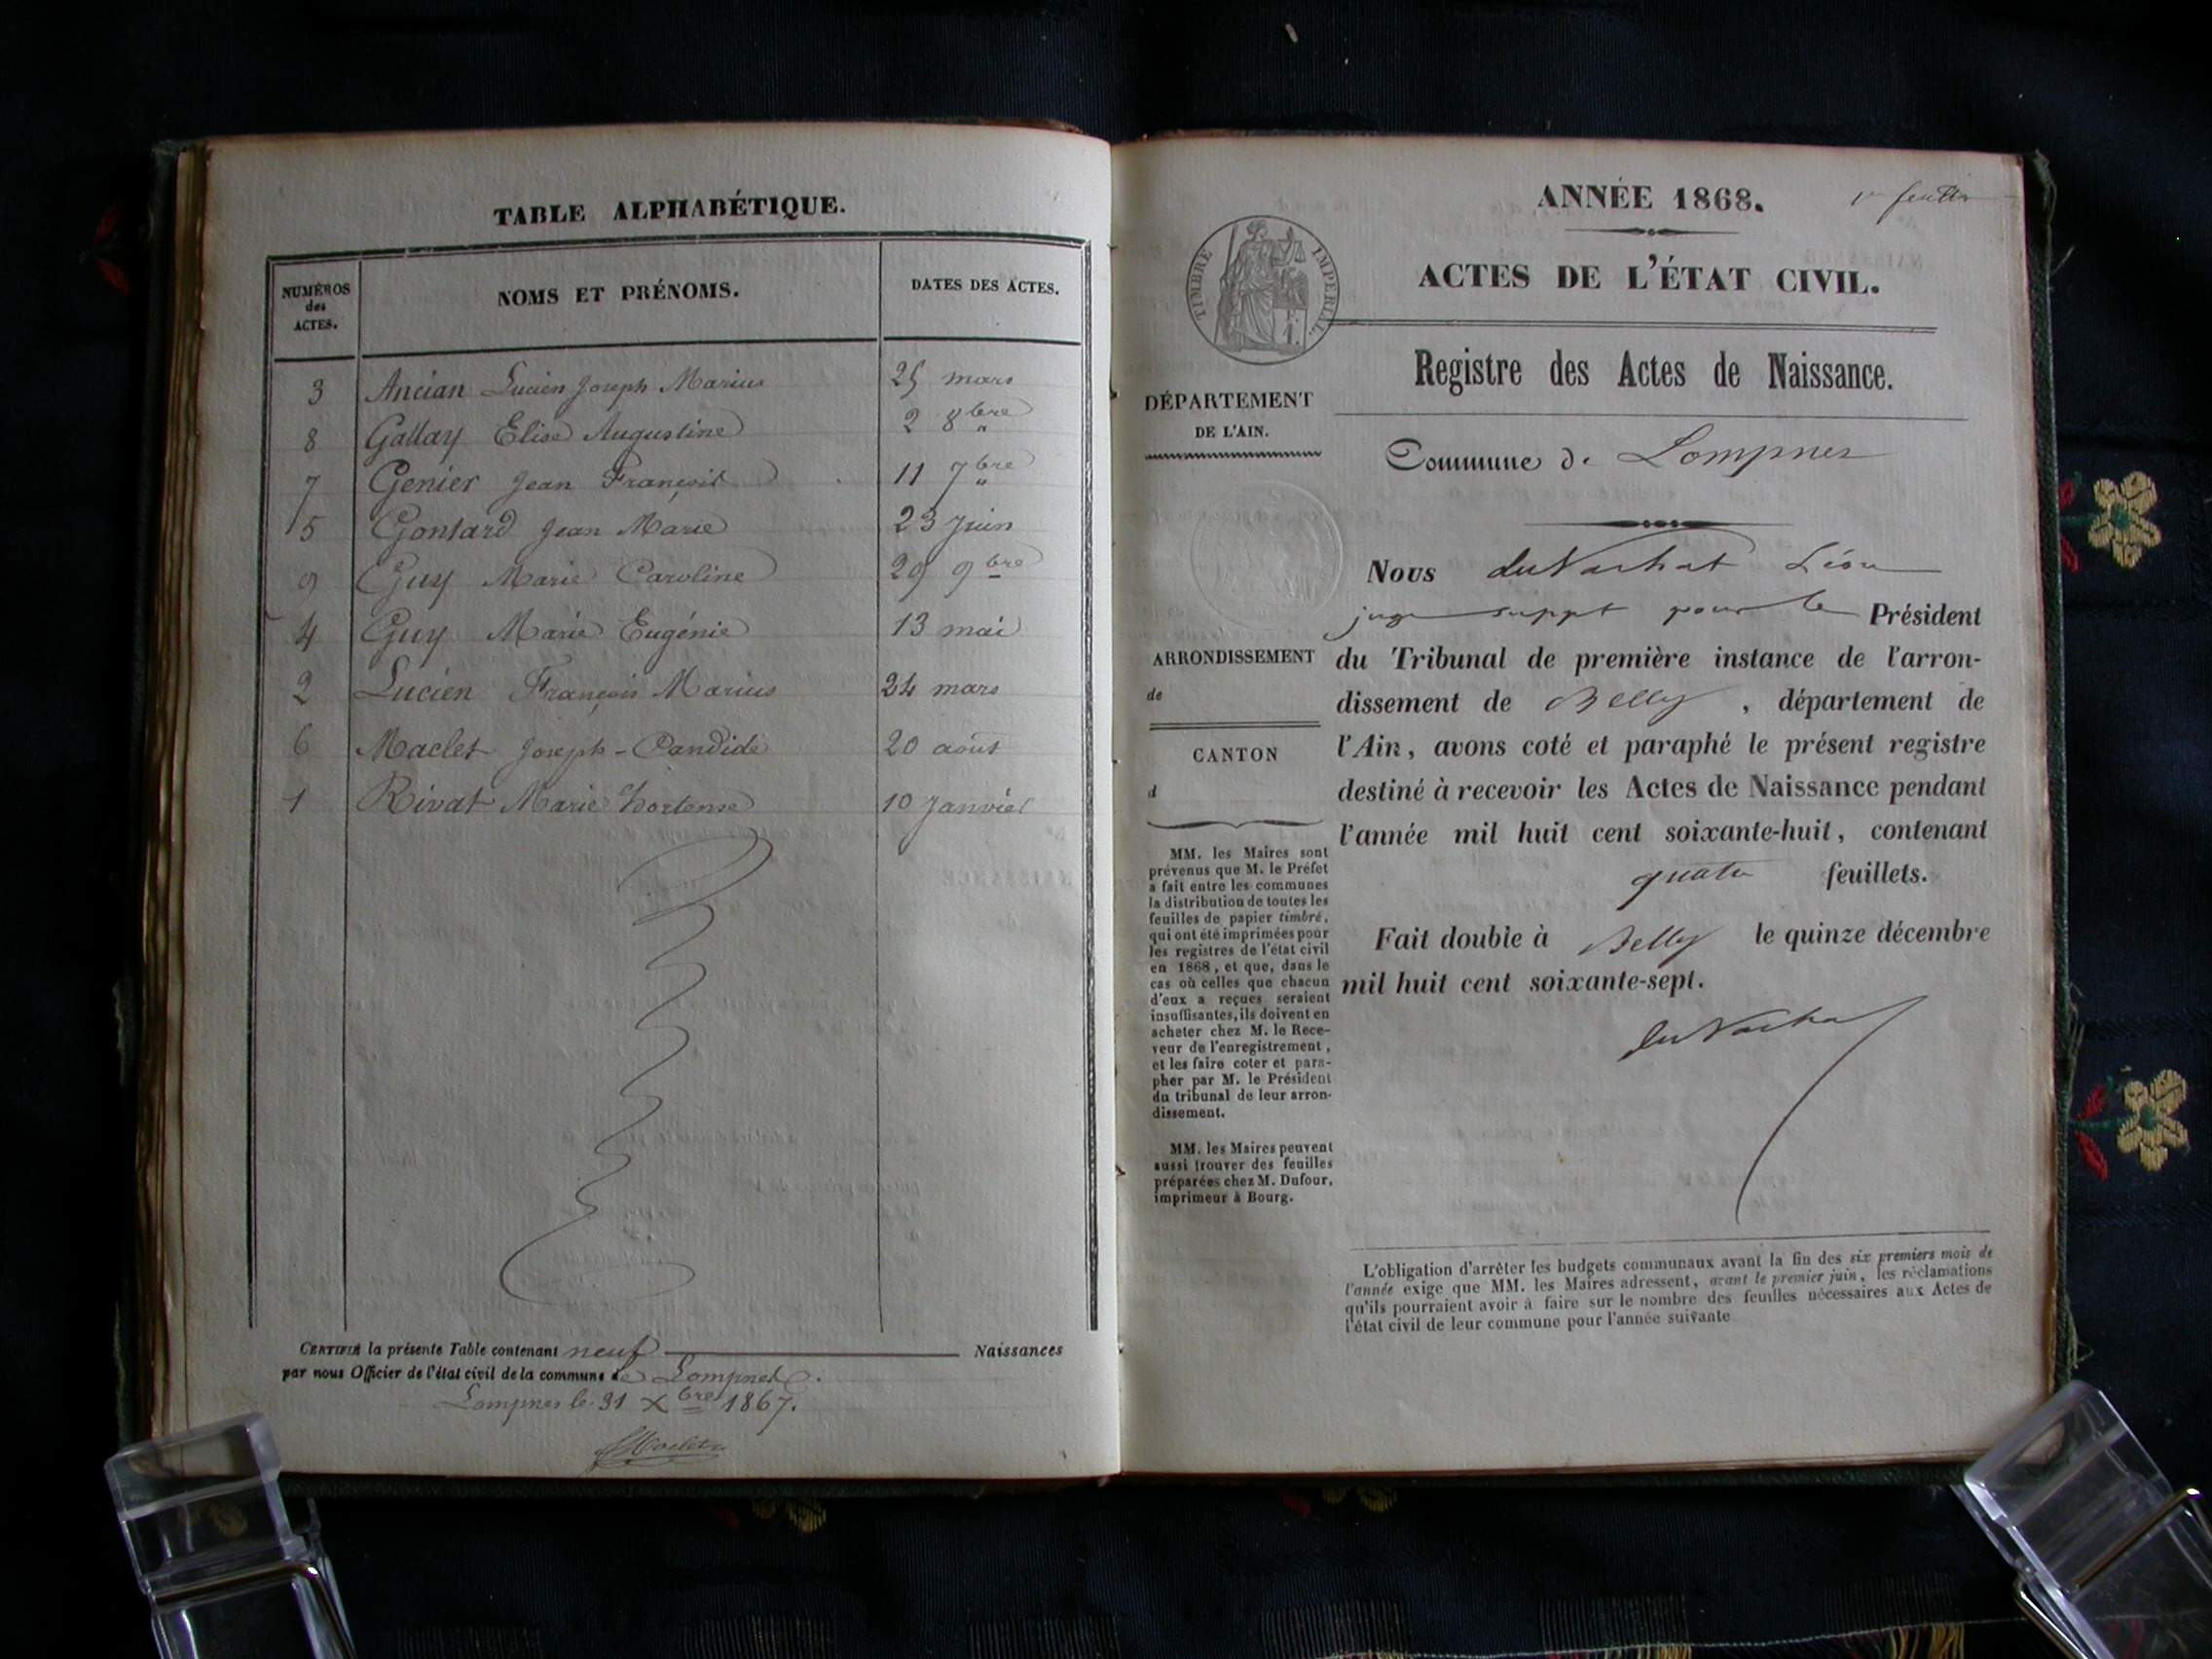 TABLE ALPHABÉTIQUE.
NUMÉROS des ACTES.
NOMS ET PRÉNOMS.
DATES DES ACTES.
3 Ancian Lucien Joseph Marius 25 mars
8 Gallay Elise Augustine 2 8bre
7 Genier Jean François 11 7bre
5 Gontard Jean Marie 23 Juin
9 Guy Marie Caroline 29 9bre
4 Guy Marie Eugénie 13 mai
2 Lucien François Marius 24 mars
6 Maclet Joseph-Candide 20 août
1 Rivat Marie Hortense 10 Janvier
CERTIFIÉ la présente Table contenant neuf Naissances
par nous Officier de l'état civil de la commune de Lompnes.
Lompnes le 31 Xbre 1867.
Maclet
ANNÉE 1868.
1er feuillet
TIMBRE IMPÉRIAL.
ACTES DE L'ÉTAT CIVIL.
Registre des Actes de Naissance.
DÉPARTEMENT
DE L'AIN.
Commune de Lompnes
Nous du Vachat Léon
juge suppt pour le Président
du Tribunal de première instance de l'arron-
dissement de Belley, département de
l'Ain, avons coté et paraphé le présent registre
destiné à recevoir les Actes de Naissance pendant
l'année mil huit cent soixante-huit, contenant
quatre feuillets.
Fait double à Belley le quinze décembre
mil huit cent soixante-sept.
du Vachat
ARRONDISSEMENT
de
CANTON
d
MM. les Maires sont
prévenus que M. le Préfet
a fait entre les communes
la distribution de toutes les
feuilles de papier timbré,
qui ont été imprimées pour
les registres de l'état civil
en 1868, et que, dans le
cas où celles que chacun
d'eux a reçues seraient
insuffisantes, ils doivent en
acheter chez M. le Rece-
veur de l'enregistrement,
et les faire coter et para-
pher par M. le Président
du tribunal de leur arron-
dissement.
MM. les Maires peuvent
aussi trouver des feuilles
préparées chez M. Dufour,
imprimeur à Bourg.
L'obligation d'arrêter les budgets communaux avant la fin des six premiers mois de
l'année exige que MM. les Maires adressent, avant le premier juin, les réclamations
qu'ils pourraient avoir à faire sur le nombre des feuilles nécessaires aux Actes de
l'état civil de leur commune pour l'année suivante